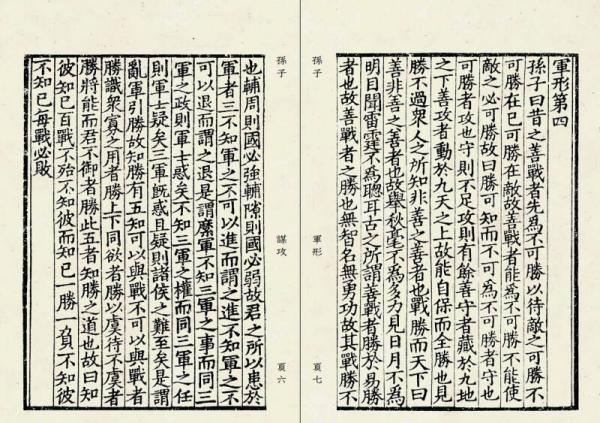 孫子
謀攻
頁六
也輔周則國必強輔隙則國必弱故君之所以患於
軍者三不知軍之不可以進而謂之進不知軍之不
可以退而謂之退是謂縻軍不知三軍之事而同三
軍之政則軍士惑矣不知三軍之權而同三軍之任
則軍士疑矣三軍既惑且疑則諸侯之難至矣是謂
亂軍引勝故知勝有五知可以與戰不可以與戰者
勝識衆寡之用者勝上下同欲者勝以虞待不虞者
勝將能而君不御者勝此五者知勝之道也故曰知
彼知己百戰不殆不知彼而知己一勝一負不知彼
不知己每戰必敗
孫子
軍形
頁七
軍形第四
孫子曰昔之善戰者先為不可勝以待敵之可勝不
可勝在己可勝在敵故善戰者能為不可勝不能使
敵之必可勝故曰勝可知而不可為不可勝者守也
可勝者攻也守則不足攻則有餘善守者藏於九地
之下善攻者動於九天之上故能自保而全勝也見
勝不過衆人之所知非善之善者也戰勝而天下曰
善非善之善者也故舉秋毫不為多力見日月不為
明目聞雷霆不為聰耳古之所謂善戰者勝於易勝
者也故善戰者之勝也無智名無勇功故其戰勝不